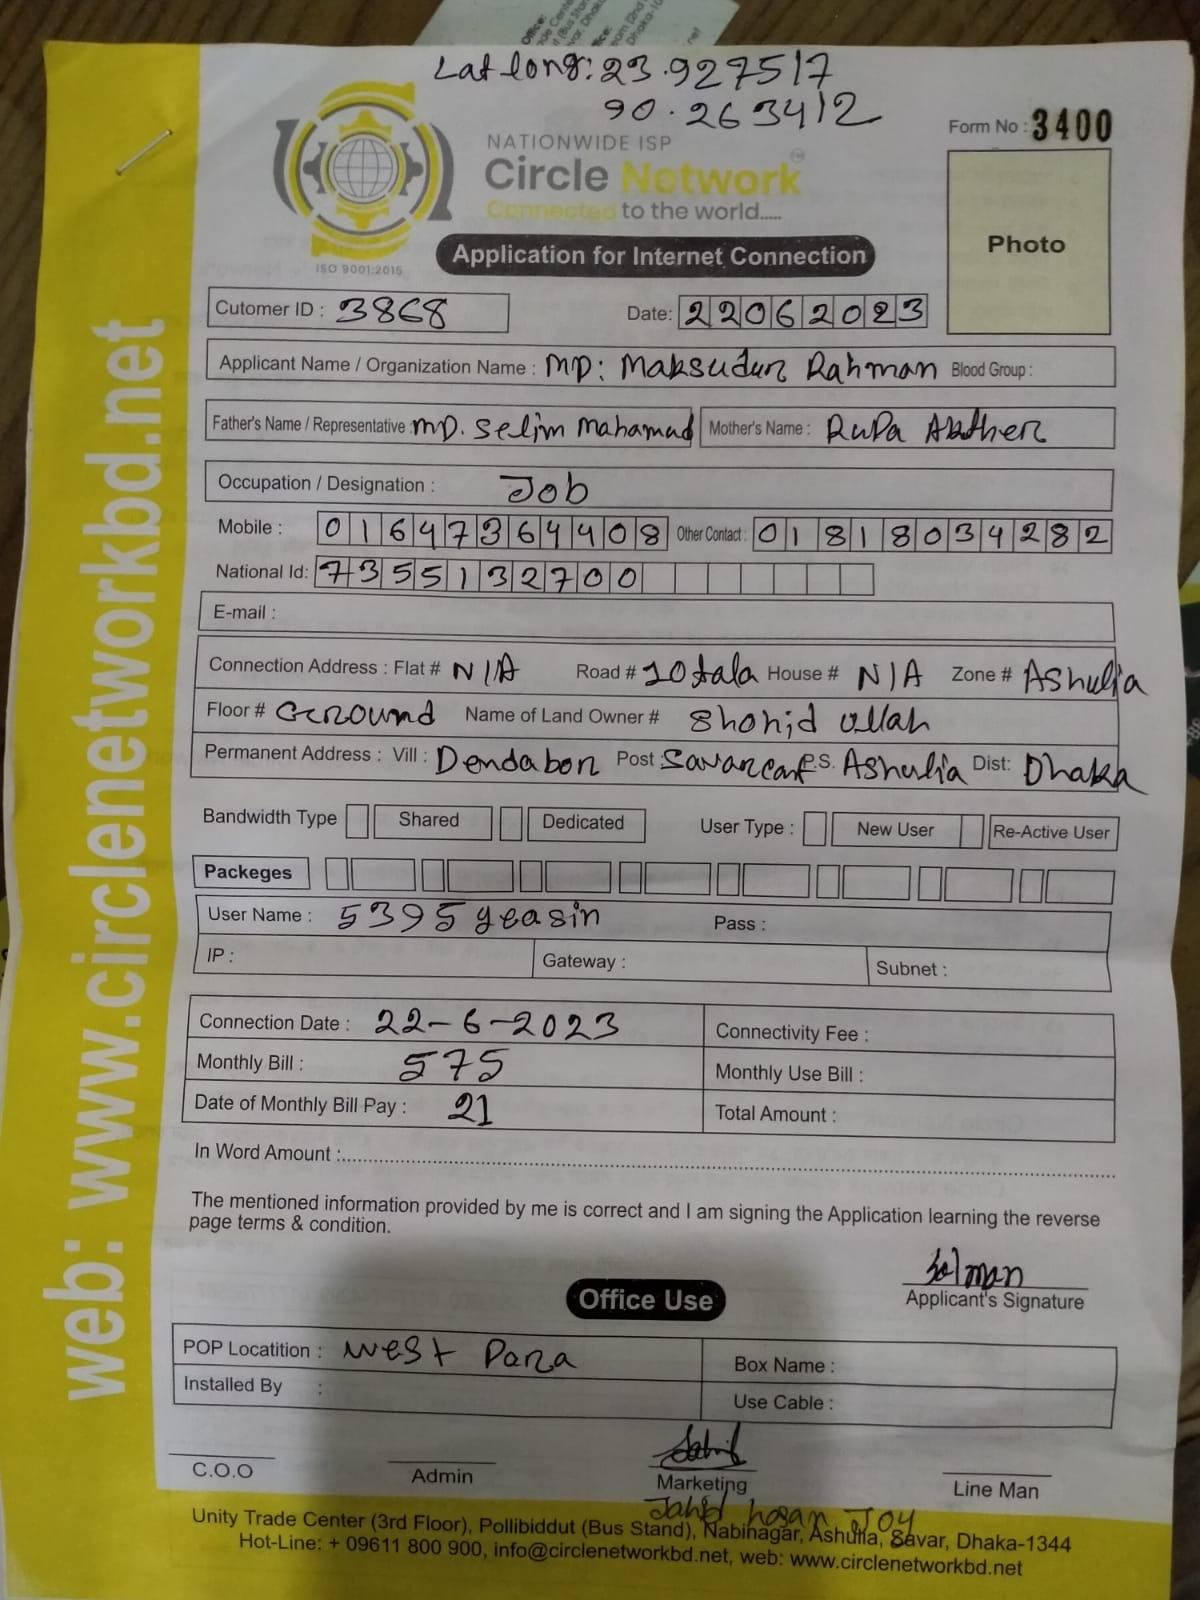 Lat long: 23.927517
90.263412
Form No : 3400
NATIONWIDE ISP
Circle Network
Connected to the world.....
ISO 9001:2015
Photo
Application for Internet Connection
Cutomer ID : 3868 Date: 22062023
Applicant Name / Organization Name : MD: Maksudur Rahman Blood Group :
Father's Name / Representative : MD. Selim Mahamad Mother's Name : RuPa Akther
Occupation / Designation : Job
Mobile : 01647364408 Other Contact : 01818034282
National Id: 7355132700
E-mail :
Connection Address : Flat # N/A Road # 10 tala House # N/A Zone # Ashulia
Floor # Ground Name of Land Owner # Shohid ullah
Permanent Address : Vill : Dendabor Post : Savarcant P.S. Ashulia Dist: Dhaka
Bandwidth Type Shared Dedicated User Type : New User Re-Active User
Packeges
User Name : 5395yeasin Pass :
IP : Gateway : Subnet :
Connection Date : 22-6-2023 Connectivity Fee :
Monthly Bill : 575 Monthly Use Bill :
Date of Monthly Bill Pay : 21 Total Amount :
In Word Amount :
The mentioned information provided by me is correct and I am signing the Application learning the reverse
page terms & condition.
Salman
Applicant's Signature
Office Use
POP Locatition : West Para Box Name :
Installed By : Use Cable :
C.O.O Admin Marketing Line Man
Jahid hosan Joy
Unity Trade Center (3rd Floor), Pollibiddut (Bus Stand), Nabinagar, Ashulia, Savar, Dhaka-1344
Hot-Line: + 09611 800 900, info@circlenetworkbd.net, web: www.circlenetworkbd.net
web: www.circlenetworkbd.net